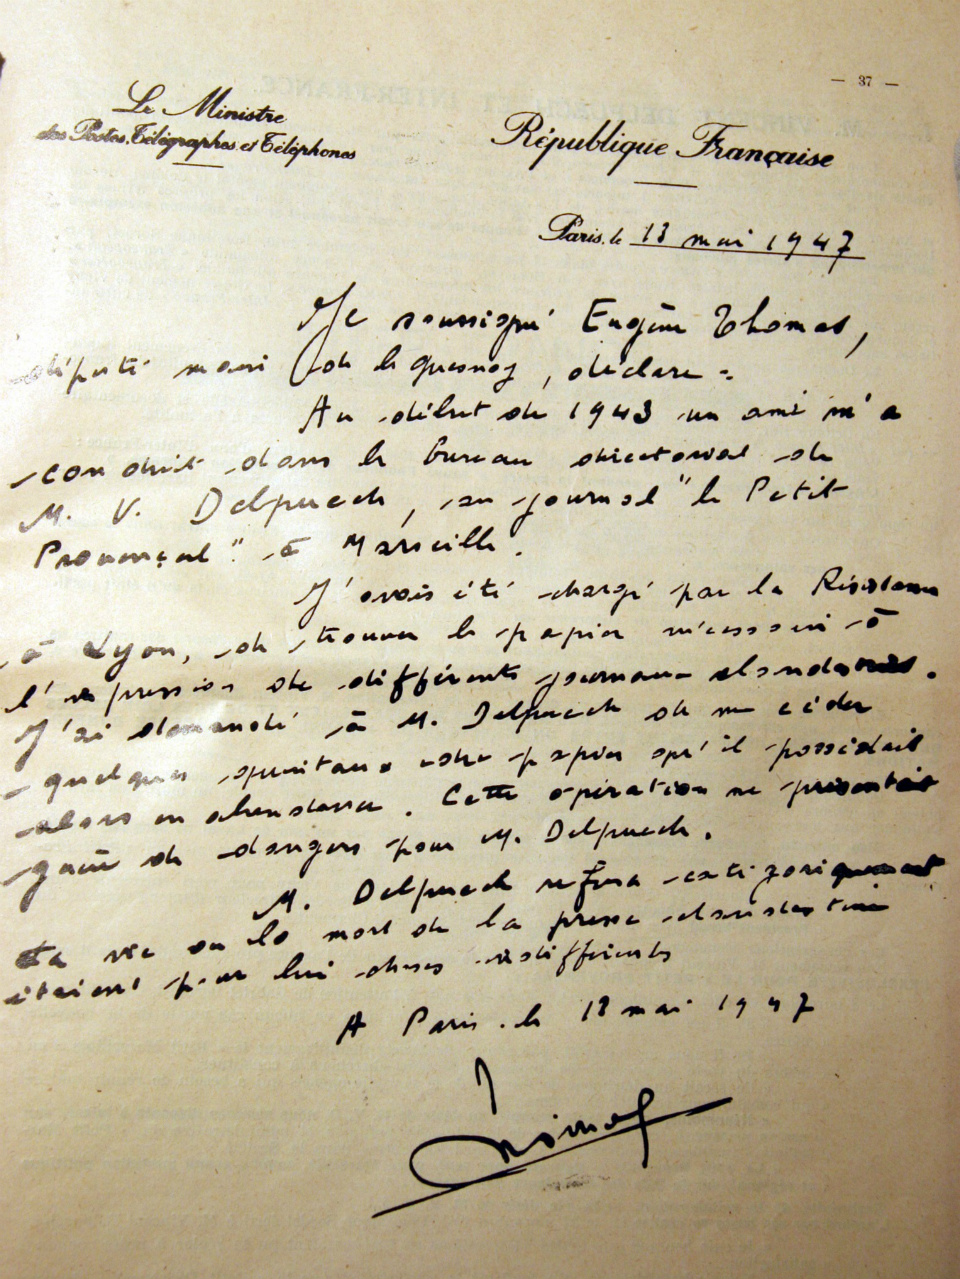 — 37 —
Le Ministre
des Postes, Télégraphes et Téléphones
République Française
Paris, le 13 mai 1947
Je soussigné Eugène Thomas,
député maire de le Quesnoy, déclare =
Au début de 1943 un ami m'a
conduit dans le bureau directorial de
M. V. Delpuech, au journal "le Petit
Provençal" à Marseille.
J'avais été chargé par la Résistance
à Lyon, de trouver le papier nécessaire à
l'impression de différents journaux clandestins.
J'ai demandé à M. Delpuech de me céder
quelques quintaux de papier qu'il possédait
alors en abondance. Cette opération ne présentait
guère de dangers pour M. Delpuech.
M. Delpuech refusa catégoriquement
La vie ou la mort de la presse clandestine
étaient pour lui choses indifférentes
A Paris. le 13 mai 1947